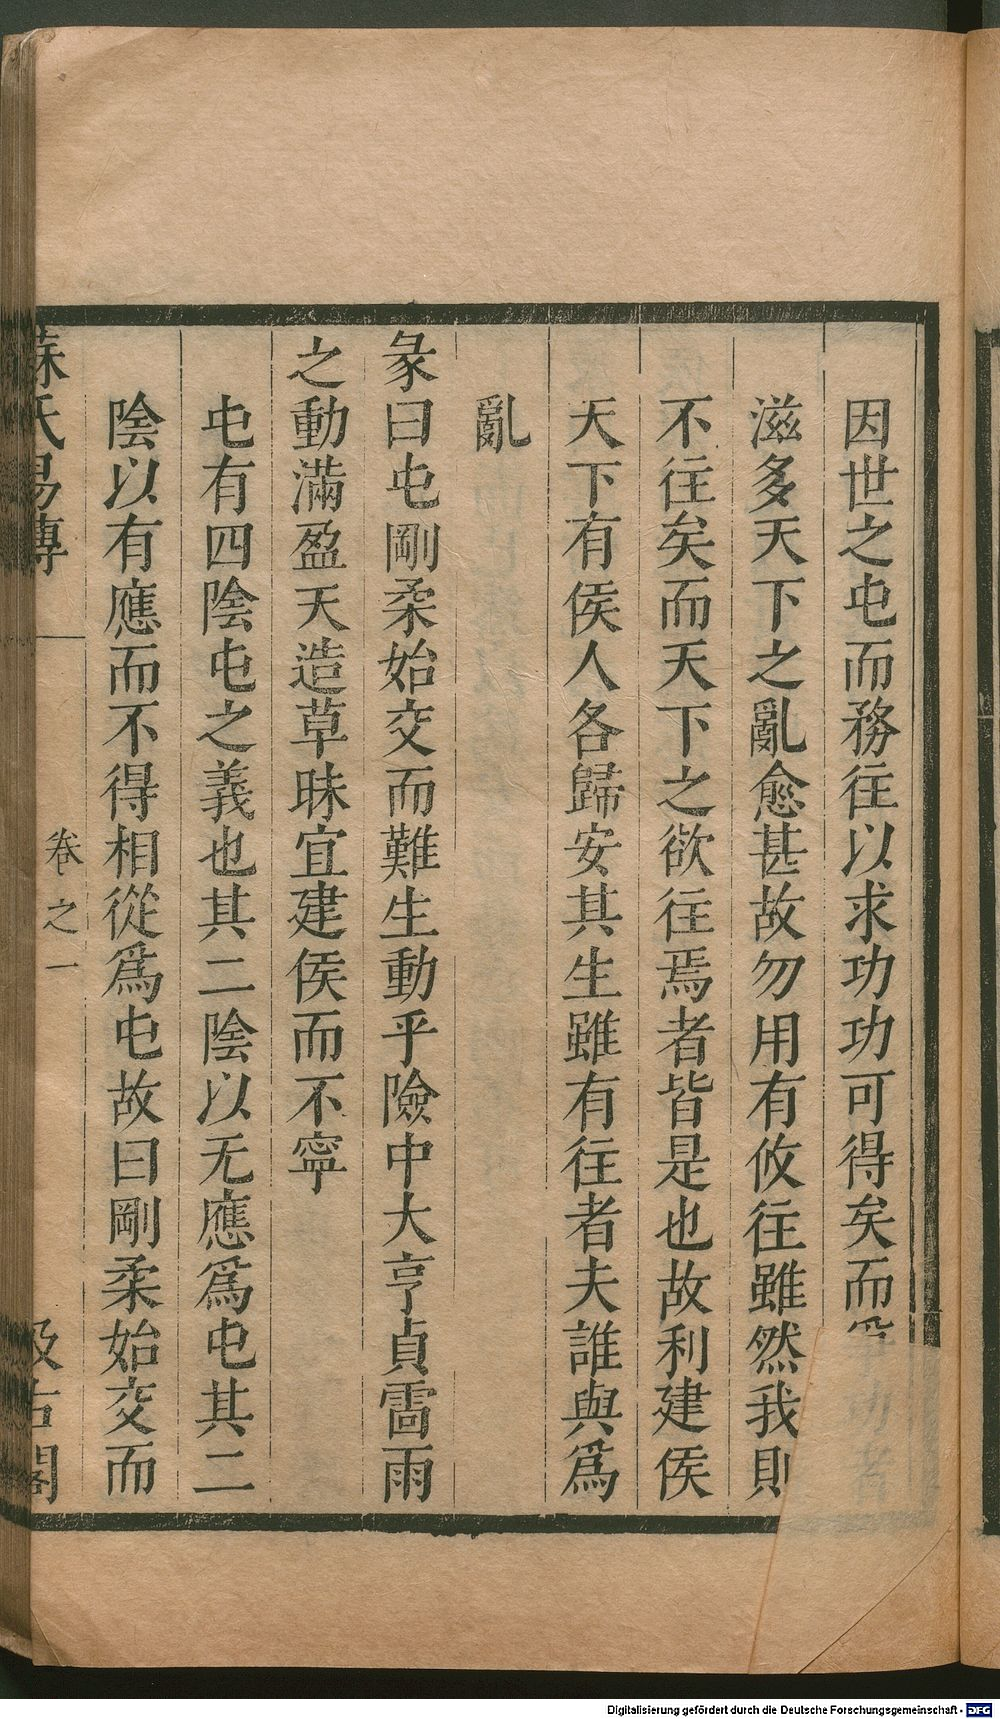 因世之屯而務往以求功功可得矣而爭功者
滋多天下之亂愈甚故勿用有攸往雖然我則
不往矣而天下之欲往焉者皆是也故利建侯
天下有侯人各歸安其生雖有往者夫誰與爲
亂
彖曰屯剛柔始交而難生動乎險中大亨貞雷雨
之動滿盈天造草昧宜建侯而不寧
屯有四陰屯之義也其二陰以无應爲屯其二
陰以有應而不得相從爲屯故曰剛柔始交而
蘇氏易傳 卷之一 汲古閣
Digitalisierung gefördert durch die Deutsche Forschungsgemeinschaft - DFG